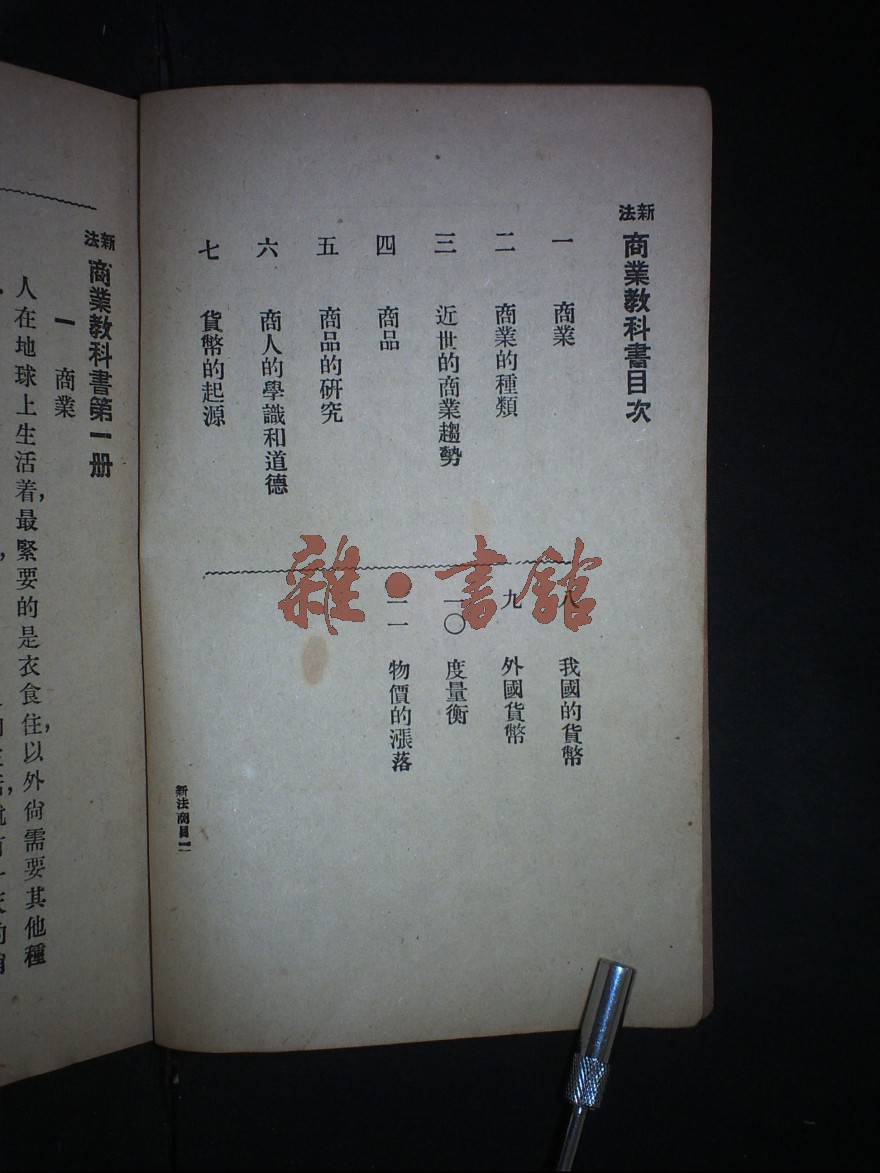 新法商業教科書目次
一　商業
二　商業的種類
三　近世的商業趨勢
四　商品
五　商品的研究
六　商人的學識和道德
七　貨幣的起源
八　我國的貨幣
九　外國貨幣
一〇　度量衡
一一　物價的漲落
雜·書館
新法商業教科書第一册
一　商業
人在地球上生活着，最緊要的是衣食住，以外尙需要其他種